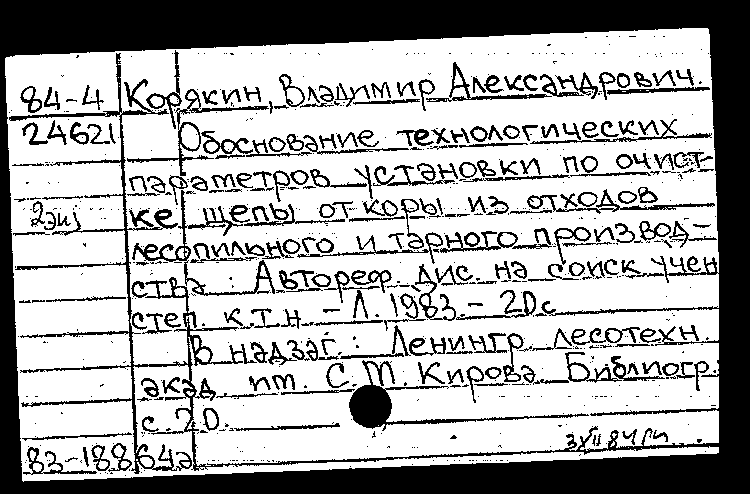 84-4 Корякин, Владимир Александрович.
24621 Обоснование технологических
параметров установки по очист-
2экз ке щепы от коры из отходов
лесопильного и тарного производ-
ства: Автореф. дис. на соиск учен
степ. к.т.н. - Л. 1983. - 20с
В надзаг.: Ленингр. лесотехн.
акад. им. С.М. Кирова. Библиогр.:
с. 20.
83-18864а